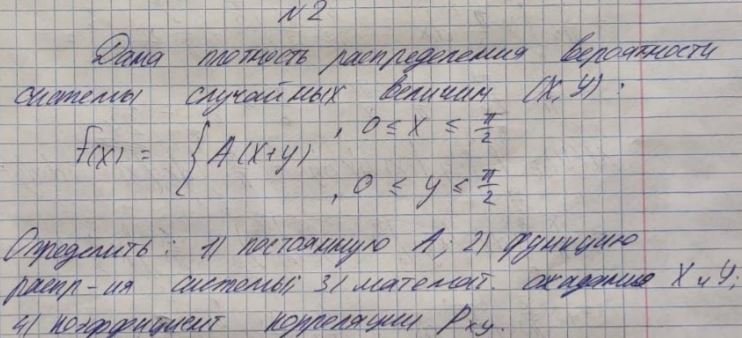 N2
Дана плотность распределения вероятности
системы случайных величин (X, Y):
f(x) = { A(x+y) , 0 ≤ x ≤ π/2
, 0 ≤ y ≤ π/2
Определить: 1) постоянную A; 2) функцию
распр-ия системы; 3) математ. ожидания X и Y;
4) коэффициент корреляции Pxy.